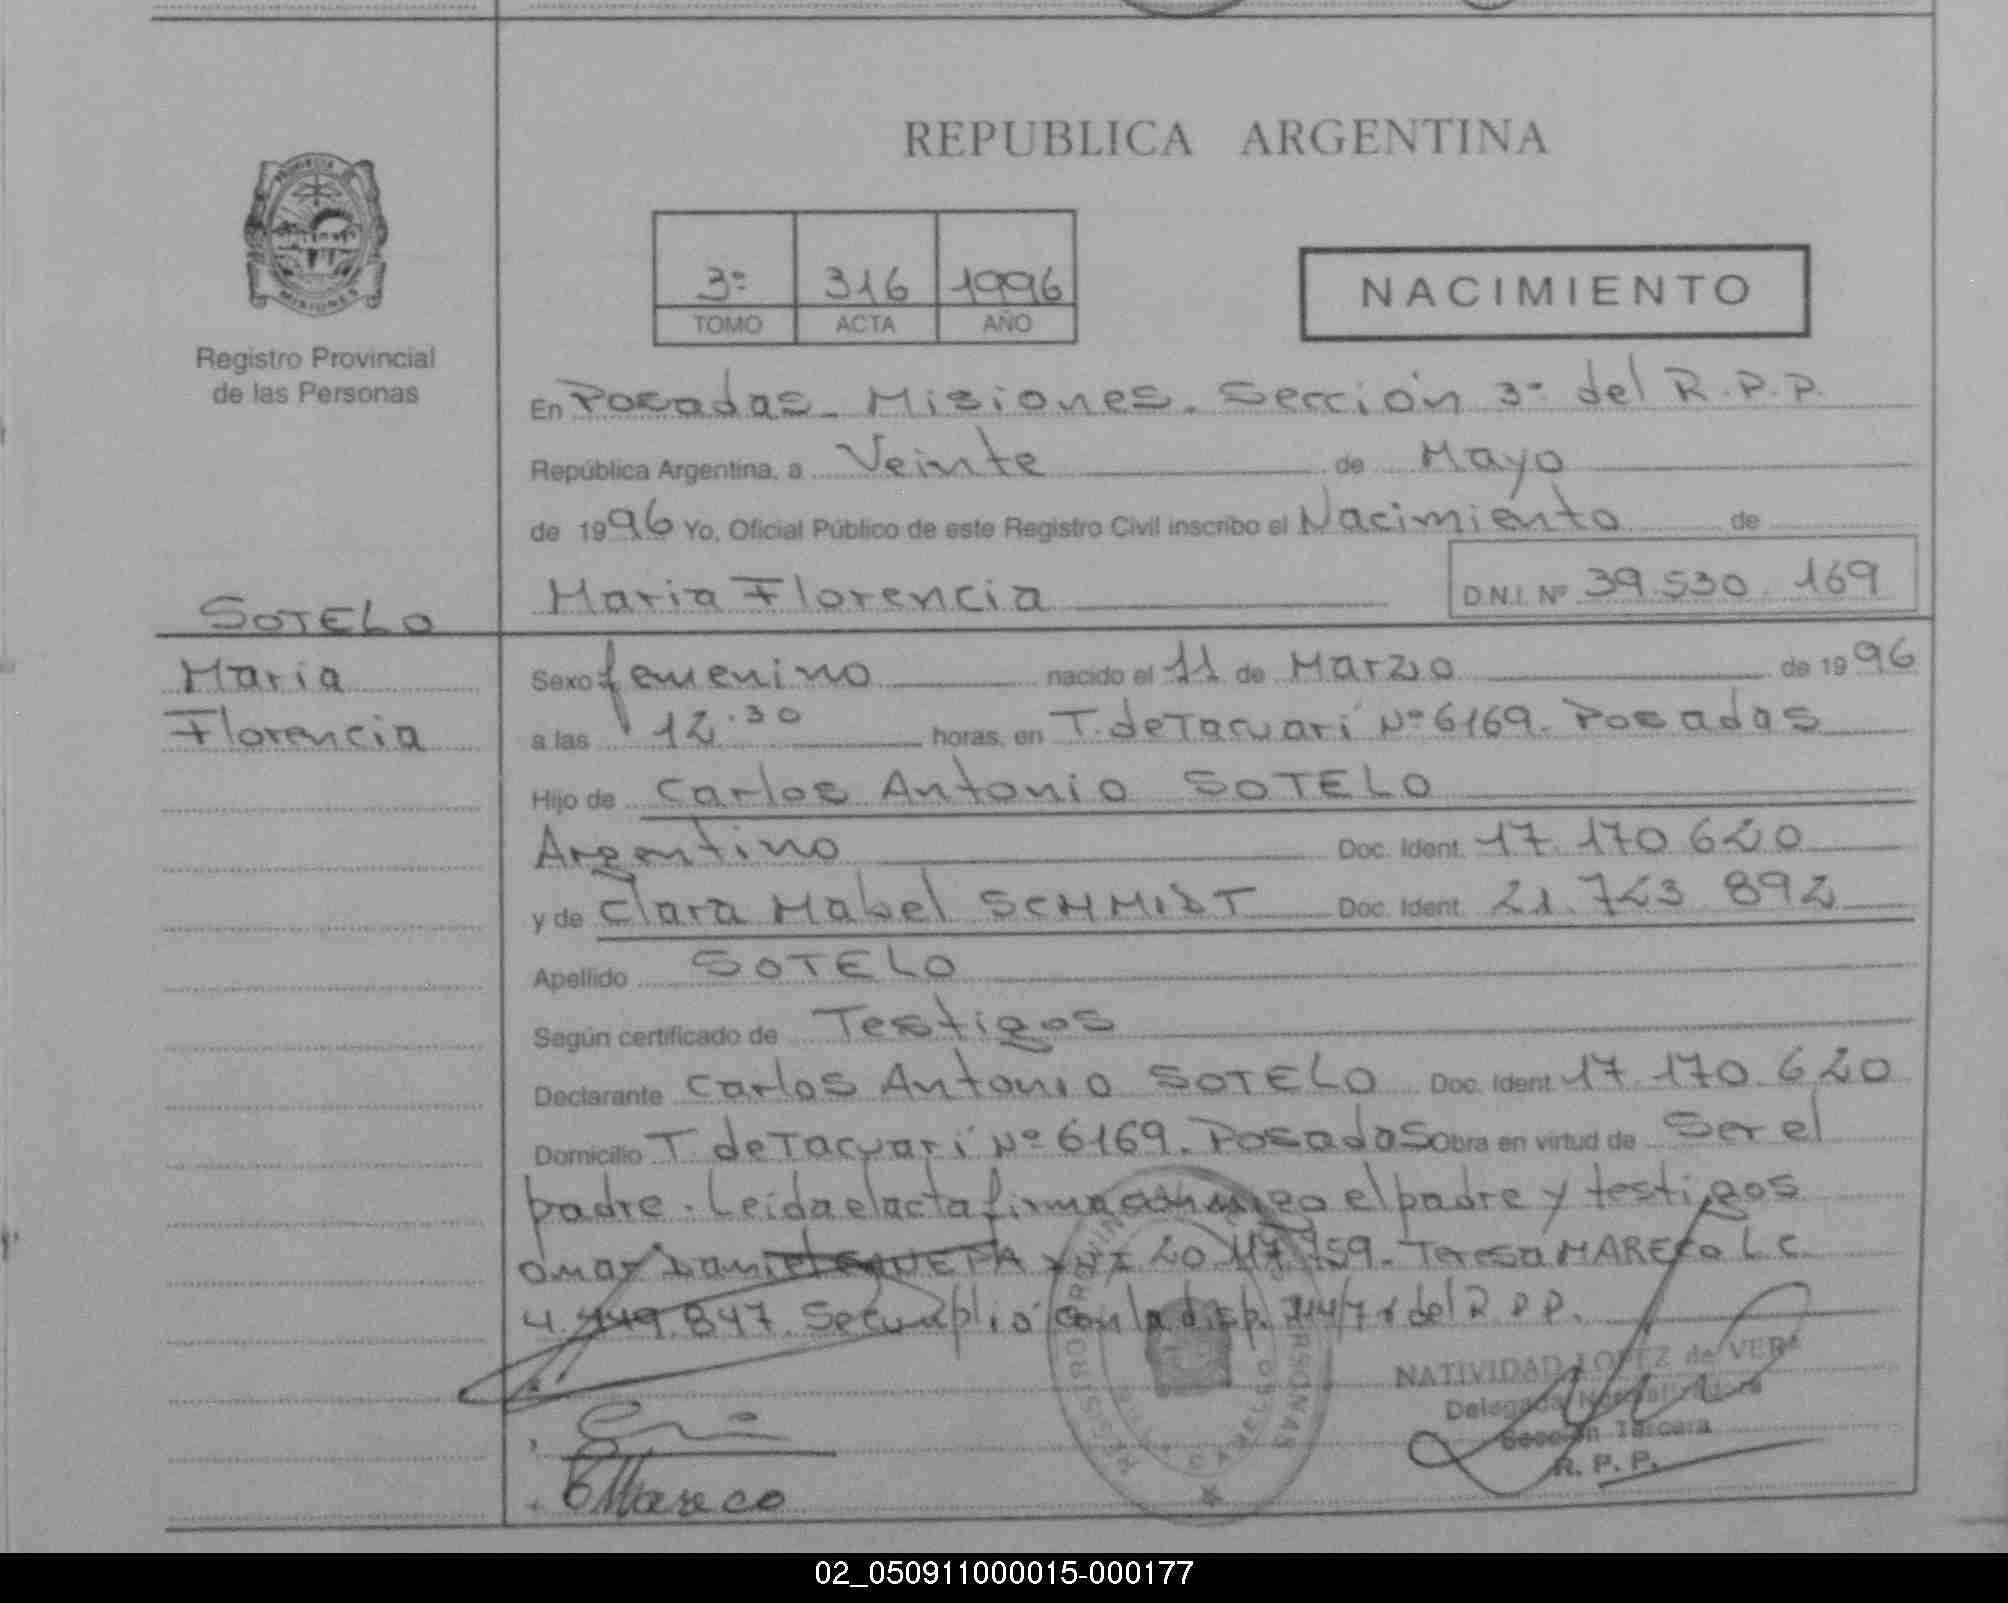 REPUBLICA ARGENTINA
PROVINCIA
MISIONES
3º 316 1996
TOMO ACTA AÑO
NACIMIENTO
Registro Provincial
de las Personas
En Posadas - Misiones. Sección 3º del R.P.P.
República Argentina, a Veinte de Mayo
de 1996 Yo, Oficial Público de este Registro Civil inscribo el Nacimiento de
Maria Florencia D.N.I. Nº 39.530.169
SOTELO
Maria
Florencia
Sexo femenino nacido el 11 de Marzo de 1996
a las 12.30 horas, en T. de Tacuarí Nº 6169. Posadas
Hijo de Carlos Antonio SOTELO
Argentino Doc. Ident. 17.170.620
y de Clara Mabel SCHMIDT Doc. Ident. 21.723.892
Apellido SOTELO
Según certificado de Testigos
Declarante Carlos Antonio SOTELO Doc. Ident. 17.170.620
Domicilio T. de Tacuarí Nº 6169. Posadas Obra en virtud de Ser el
padre. Leída el acta firma conmigo el padre y testigos
Omar Daniel DNI 20.117.759. Teresa MARECO L.C.
4.449.847. Se cumplió con la disp. del R.P.P.
NATIVIDAD LOPEZ de VERA
Delegada
Sección Tercera
R. P. P.
REGISTRO PROVINCIAL PERSONAS
Mareco
02_050911000015-000177